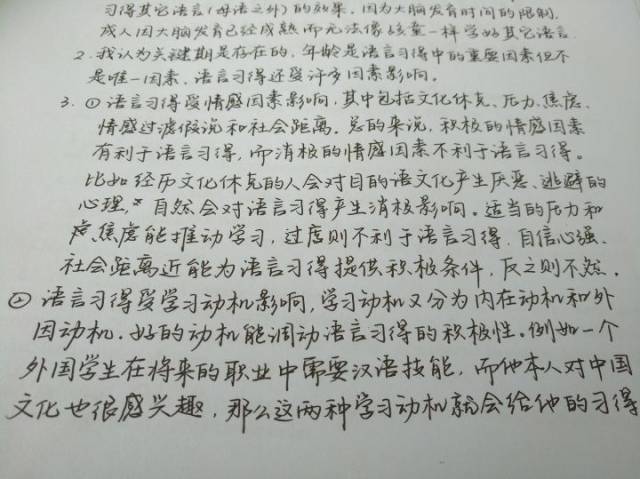 习得其它语言(母语之外)的效果。因为大脑发育时间的限制,
成人因大脑发育已经成熟而无法像孩童一样学好其它语言
2. 我认为关键期是存在的,年龄是语言习得中的重要因素但不
是唯一因素,语言习得还受许多因素影响。
3. ① 语言习得受情感因素影响,其中包括文化休克、压力、焦虑、
情感过滤假说和社会距离。总的来说,积极的情感因素
有利于语言习得,而消极的情感因素不利于语言习得。
比如经历文化休克的人会对目的语文化产生厌恶、逃避的
心理,自然会对语言习得产生消极影响。适当的压力和
焦虑能推动学习,过度则不利于语言习得。自信心强、
社会距离近能为语言习得提供积极条件,反之则不然。
② 语言习得受学习动机影响,学习动机又分为内在动机和外
因动机。好的动机能调动语言习得的积极性。例如一个
外国学生在将来的职业中需要汉语技能,而他本人对中国
文化也很感兴趣,那么这两种学习动机就会给他的习得